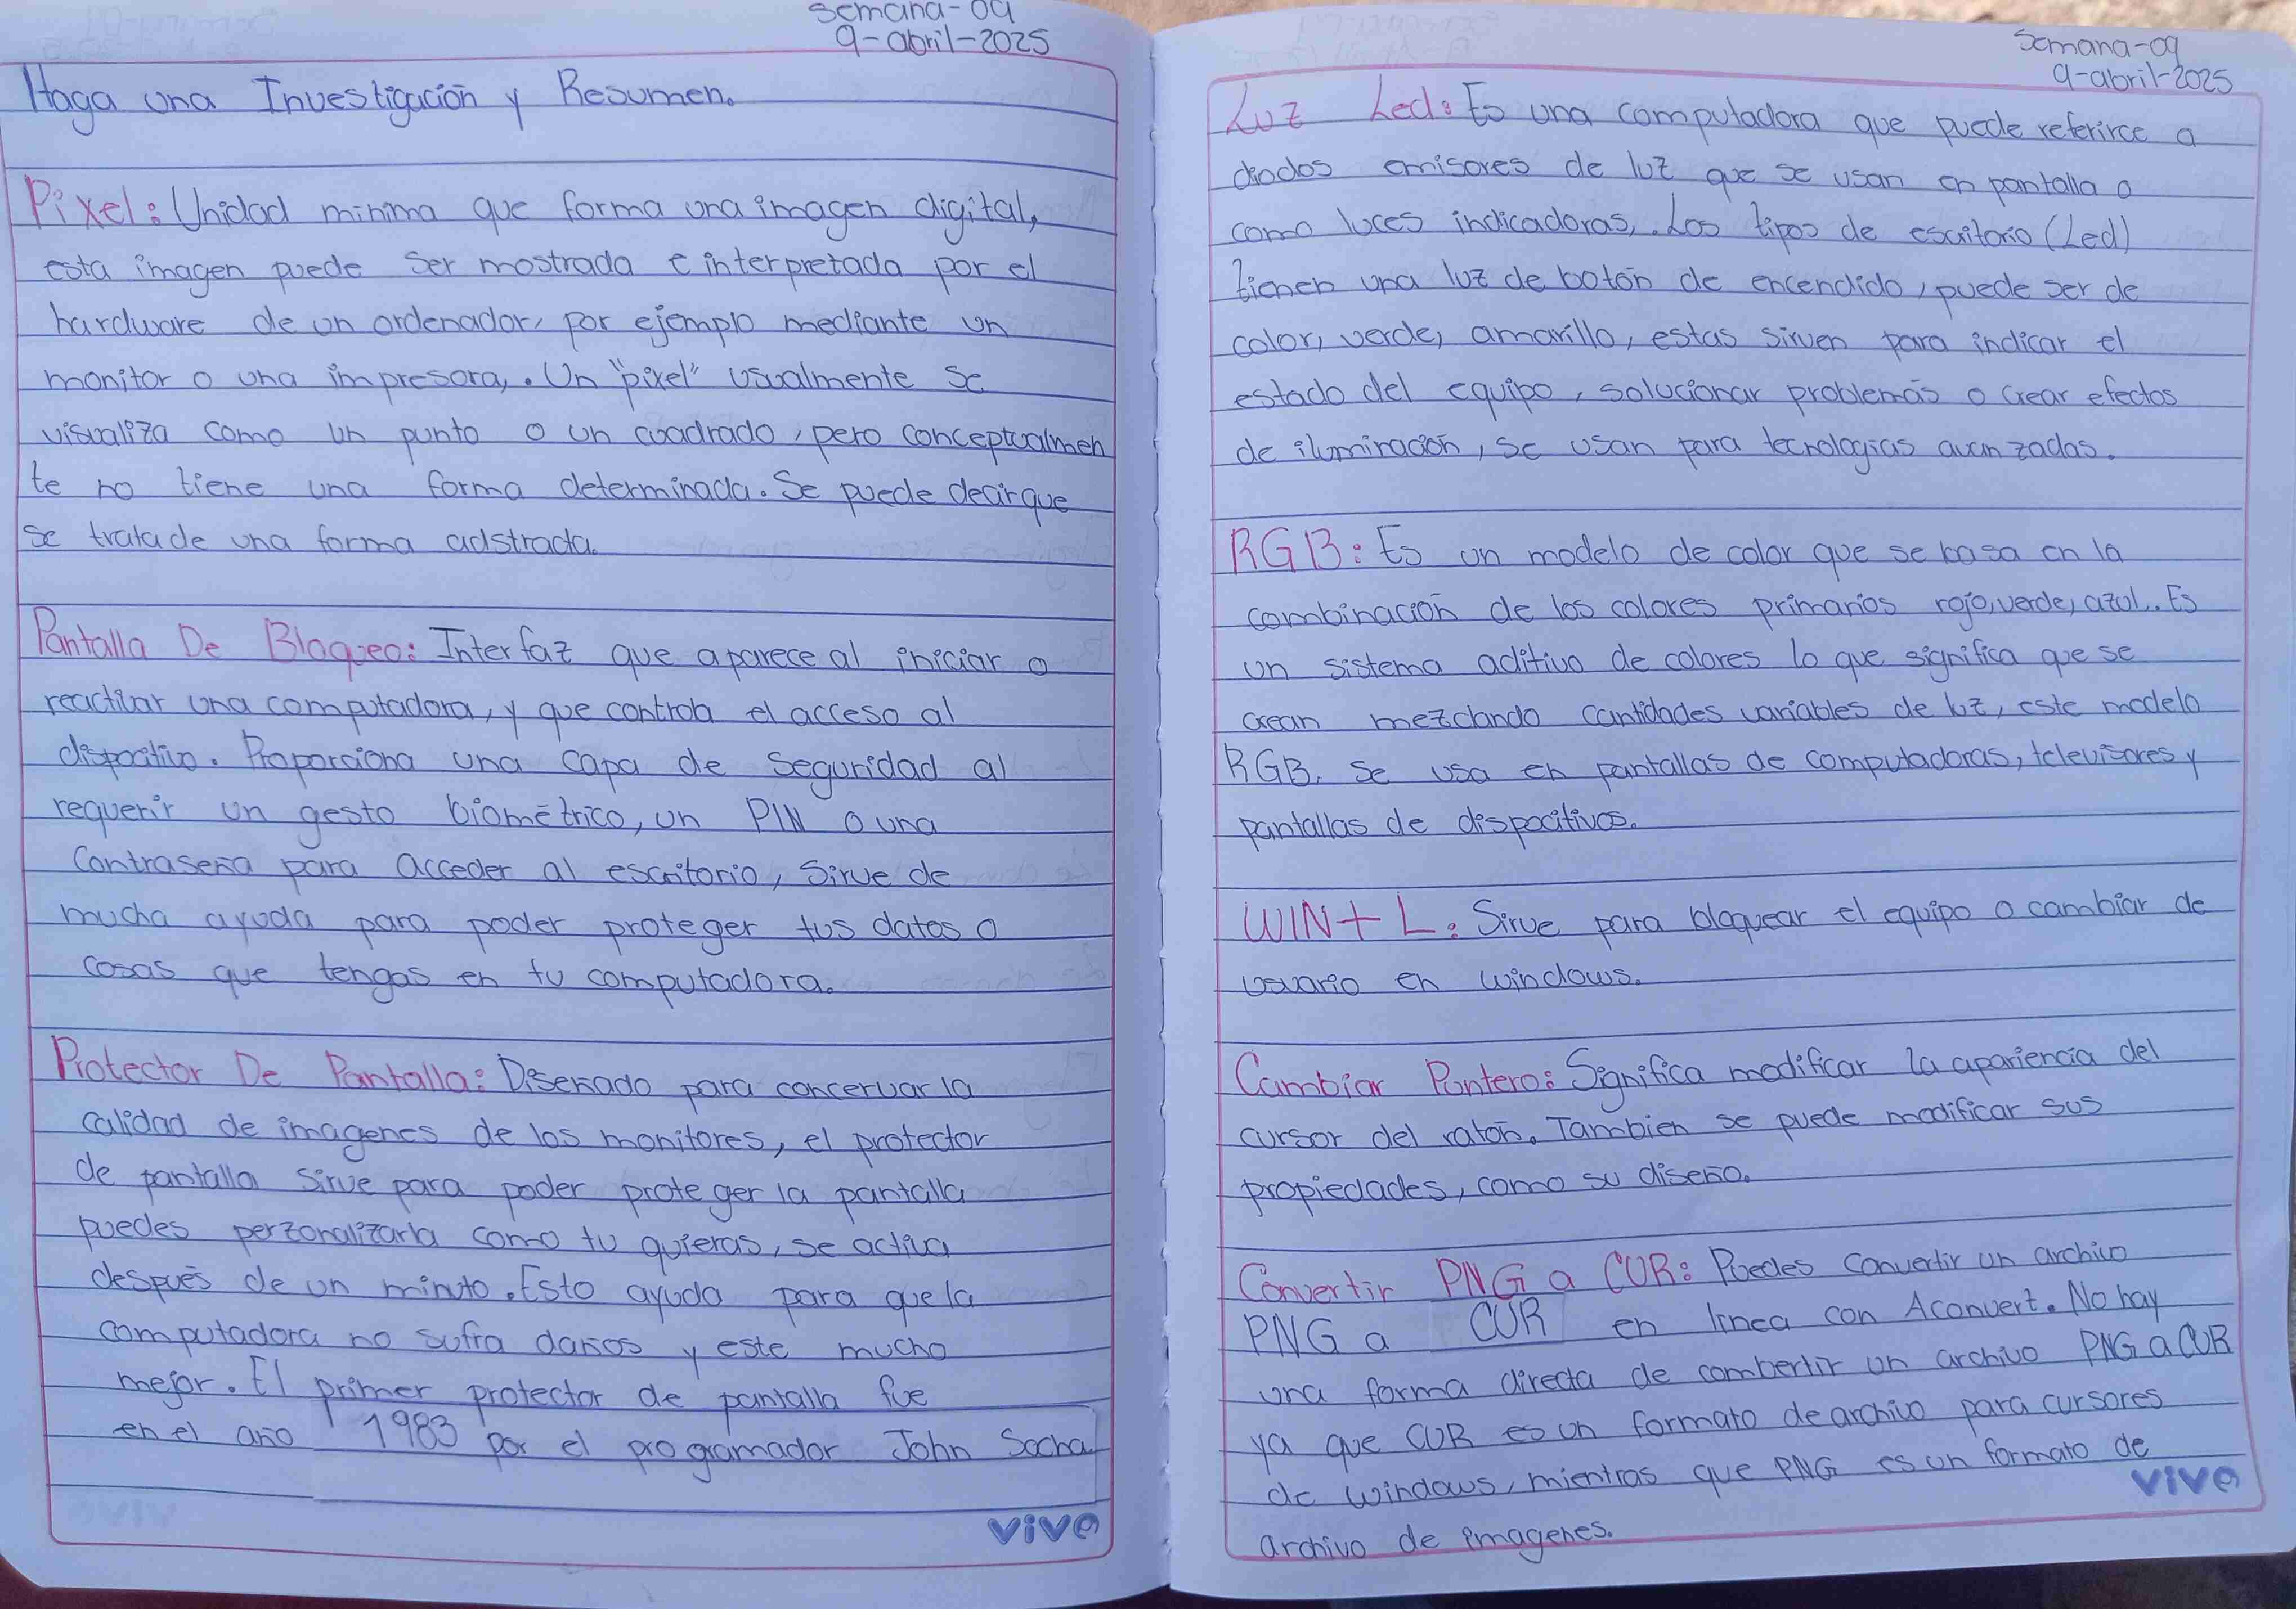 Semana-09
9-abril-2025
Haga una Investigación y Resumen.
Pixel: Unidad minima que forma una imagen digital,
esta imagen puede ser mostrada e interpretada por el
hardware de un ordenador, por ejemplo mediante un
monitor o una impresora,. Un "pixel" usualmente se
visualiza como un punto o un cuadrado, pero conceptualmen
te no tiene una forma determinada. Se puede decir que
se trata de una forma adstrada.
Pantalla De Bloqueo: Interfaz que aparece al iniciar o
reactivar una computadora, y que controla el acceso al
dispocitivo. Proporciona una capa de seguridad al
requerir un gesto biométrico, un PIN o una
contraseña para acceder al escritorio, sirve de
mucha ayuda para poder proteger tus datos o
cosas que tengas en tu computadora.
Protector De Pantalla: Diseñado para concervar la
calidad de imagenes de los monitores, el protector
de pantalla sirve para poder proteger la pantalla
puedes perzonalizarla como tu quieras, se activa
después de un minuto. Esto ayuda para que la
computadora no sufra daños y este mucho
mejor. El primer protector de pantalla fue
en el año 1983 por el programador John Socha
vive
Semana-09
9-abril-2025
Luz Led: Es una computadora que puede referirce a
diodos emisores de luz que se usan en pantalla o
como luces indicadoras,. Los tipos de escritorio (Led)
tienen una luz de botón de encendido, puede ser de
color, verde, amarillo, estas sirven para indicar el
estado del equipo, solucionar problemás o crear efectos
de iluminación, se usan para tecnologías avanzadas.
RGB: Es un modelo de color que se basa en la
combinación de los colores primarios rojo, verde, azul,. Es
un sistema aditivo de colores lo que significa que se
crean mezclando cantidades variables de luz, este modelo
RGB, se usa en pantallas de computadoras, televisores y
pantallas de dispocitivos.
WIN+ L: Sirve para bloquear el equipo o cambiar de
usuario en windows.
Cambiar Puntero: Significa modificar la apariencia del
cursor del ratón. Tambien se puede modificar sus
propiedades, como su diseño.
Convertir PNG a CUR: Puedes convertir un archivo
PNG a CUR en linea con Aconvert. No hay
una forma directa de combertir un archivo PNG a CUR
ya que CUR es un formato de archivo para cursores
de windows, mientras que PNG es un formato de
archivo de imagenes.
vive